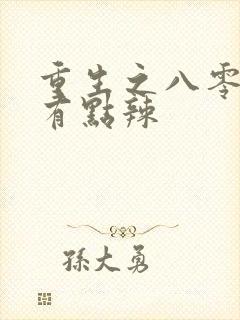 重生之八零
有點辣
孫大勇